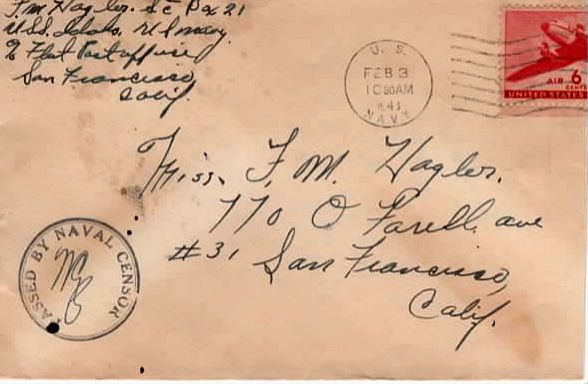 F.M. Hagler. S2c Box 21
USS. Idaho. US Navy.
% Fleet Post office
San Francisco,
Calif.
U. S.
FEB 3
10 30 AM
1943
NAVY
AIR 6 CENTS
UNITED STATES
Miss. F. M. Hagler.
770 O Farell ave
#31 San Francisco,
Calif.
PASSED BY NAVAL CENSOR